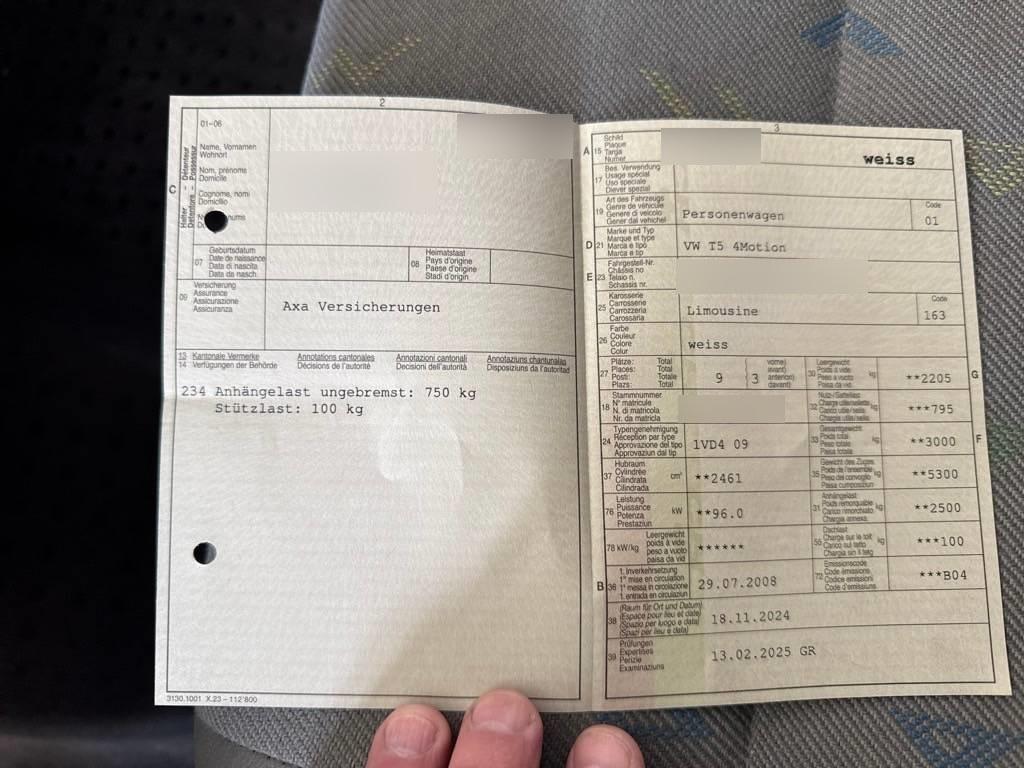 2
01-06
Name, Vornamen
Wohnort
Nom, prénoms
Domicile
Cognome, nomi
Domicilio
C
Halter – Détenteur
Detentore – Possessur
07
Geburtsdatum
Date de naissance
Data di nascita
Data da nasch.
08
Heimatstaat
Pays d'origine
Paese d'origine
Stadi d'origin
09
Versicherung
Assurance
Assicurazione
Assicuranza
Axa Versicherungen
13 Kantonale Vermerke Annotations cantonales Annotazioni cantonali Annotaziuns chantunalas
14 Verfügungen der Behörde Décisions de l'autorité Decisioni dell'autorità Disposiziuns da l'autoritad
234 Anhängelast ungebremst: 750 kg
Stützlast: 100 kg
3130.1001 X.23 – 112'800
3
A 15
Schild
Plaque
Targa
Numer
weiss
17
Bes. Verwendung
Usage spécial
Uso speciale
Diever spezial
19
Art des Fahrzeugs
Genre de véhicule
Genere di veicolo
Gener dal vehichel
Personenwagen
Code
01
D 21
Marke und Typ
Marque et type
Marca e tipo
Marca e tip
VW T5 4Motion
E 23
Fahrgestell-Nr.
Châssis no
Telaio n.
Schassis nr.
25
Karosserie
Carrosserie
Carrozzeria
Carossaria
Limousine
Code
163
26
Farbe
Couleur
Colore
Colur
weiss
27
Plätze: Total
Places: Total
Posti: Totale
Plazs: Total
9
3
vorne)
avant)
anteriori)
davant)
30
Leergewicht
Poids à vide
Peso a vuoto
Paisa da vid
kg
**2205
G
18
Stammnummer
N° matricule
N. di matricola
Nr. da matricla
32
kg
***795
24
Typengenehmigung
Réception par type
Approvazione del tipo
Approvaziun dal tip
1VD4 09
33
Gesamtgewicht
Poids total
Peso totale
Paisa totala
kg
**3000
F
37
Hubraum
Cylindrée
Cilindrata
Cilindrada
cm³
**2461
35
Gewicht des Zuges
Poids de l'ensemble
Peso del convoglio
Paisa cumposiziun
kg
**5300
76
Leistung
Puissance
Potenza
Prestaziun
kW
**96.0
31
Anhängelast
Poids remorquable
Carico rimorchiato
Chargia annexa
kg
**2500
78 kW/kg
Leergewicht
poids à vide
peso a vuoto
paisa da vid
******
55
Dachlast
Charge sur le toit
Carico sul tetto
Chargia sin il tetg
kg
***100
B 36
1. Inverkehrsetzung
1re mise en circulation
1a messa in circolazione
1. entrada en circulaziun
29.07.2008
72
Emissionscode
Code émissions
Codice emissioni
Code d'emissiuns
***B04
38
(Raum für Ort und Datum)
(Espace pour lieu et date)
(Spazio per luogo e data)
(Spazi per lieu e data)
18.11.2024
39
Prüfungen
Expertises
Perizie
Examinaziuns
13.02.2025 GR